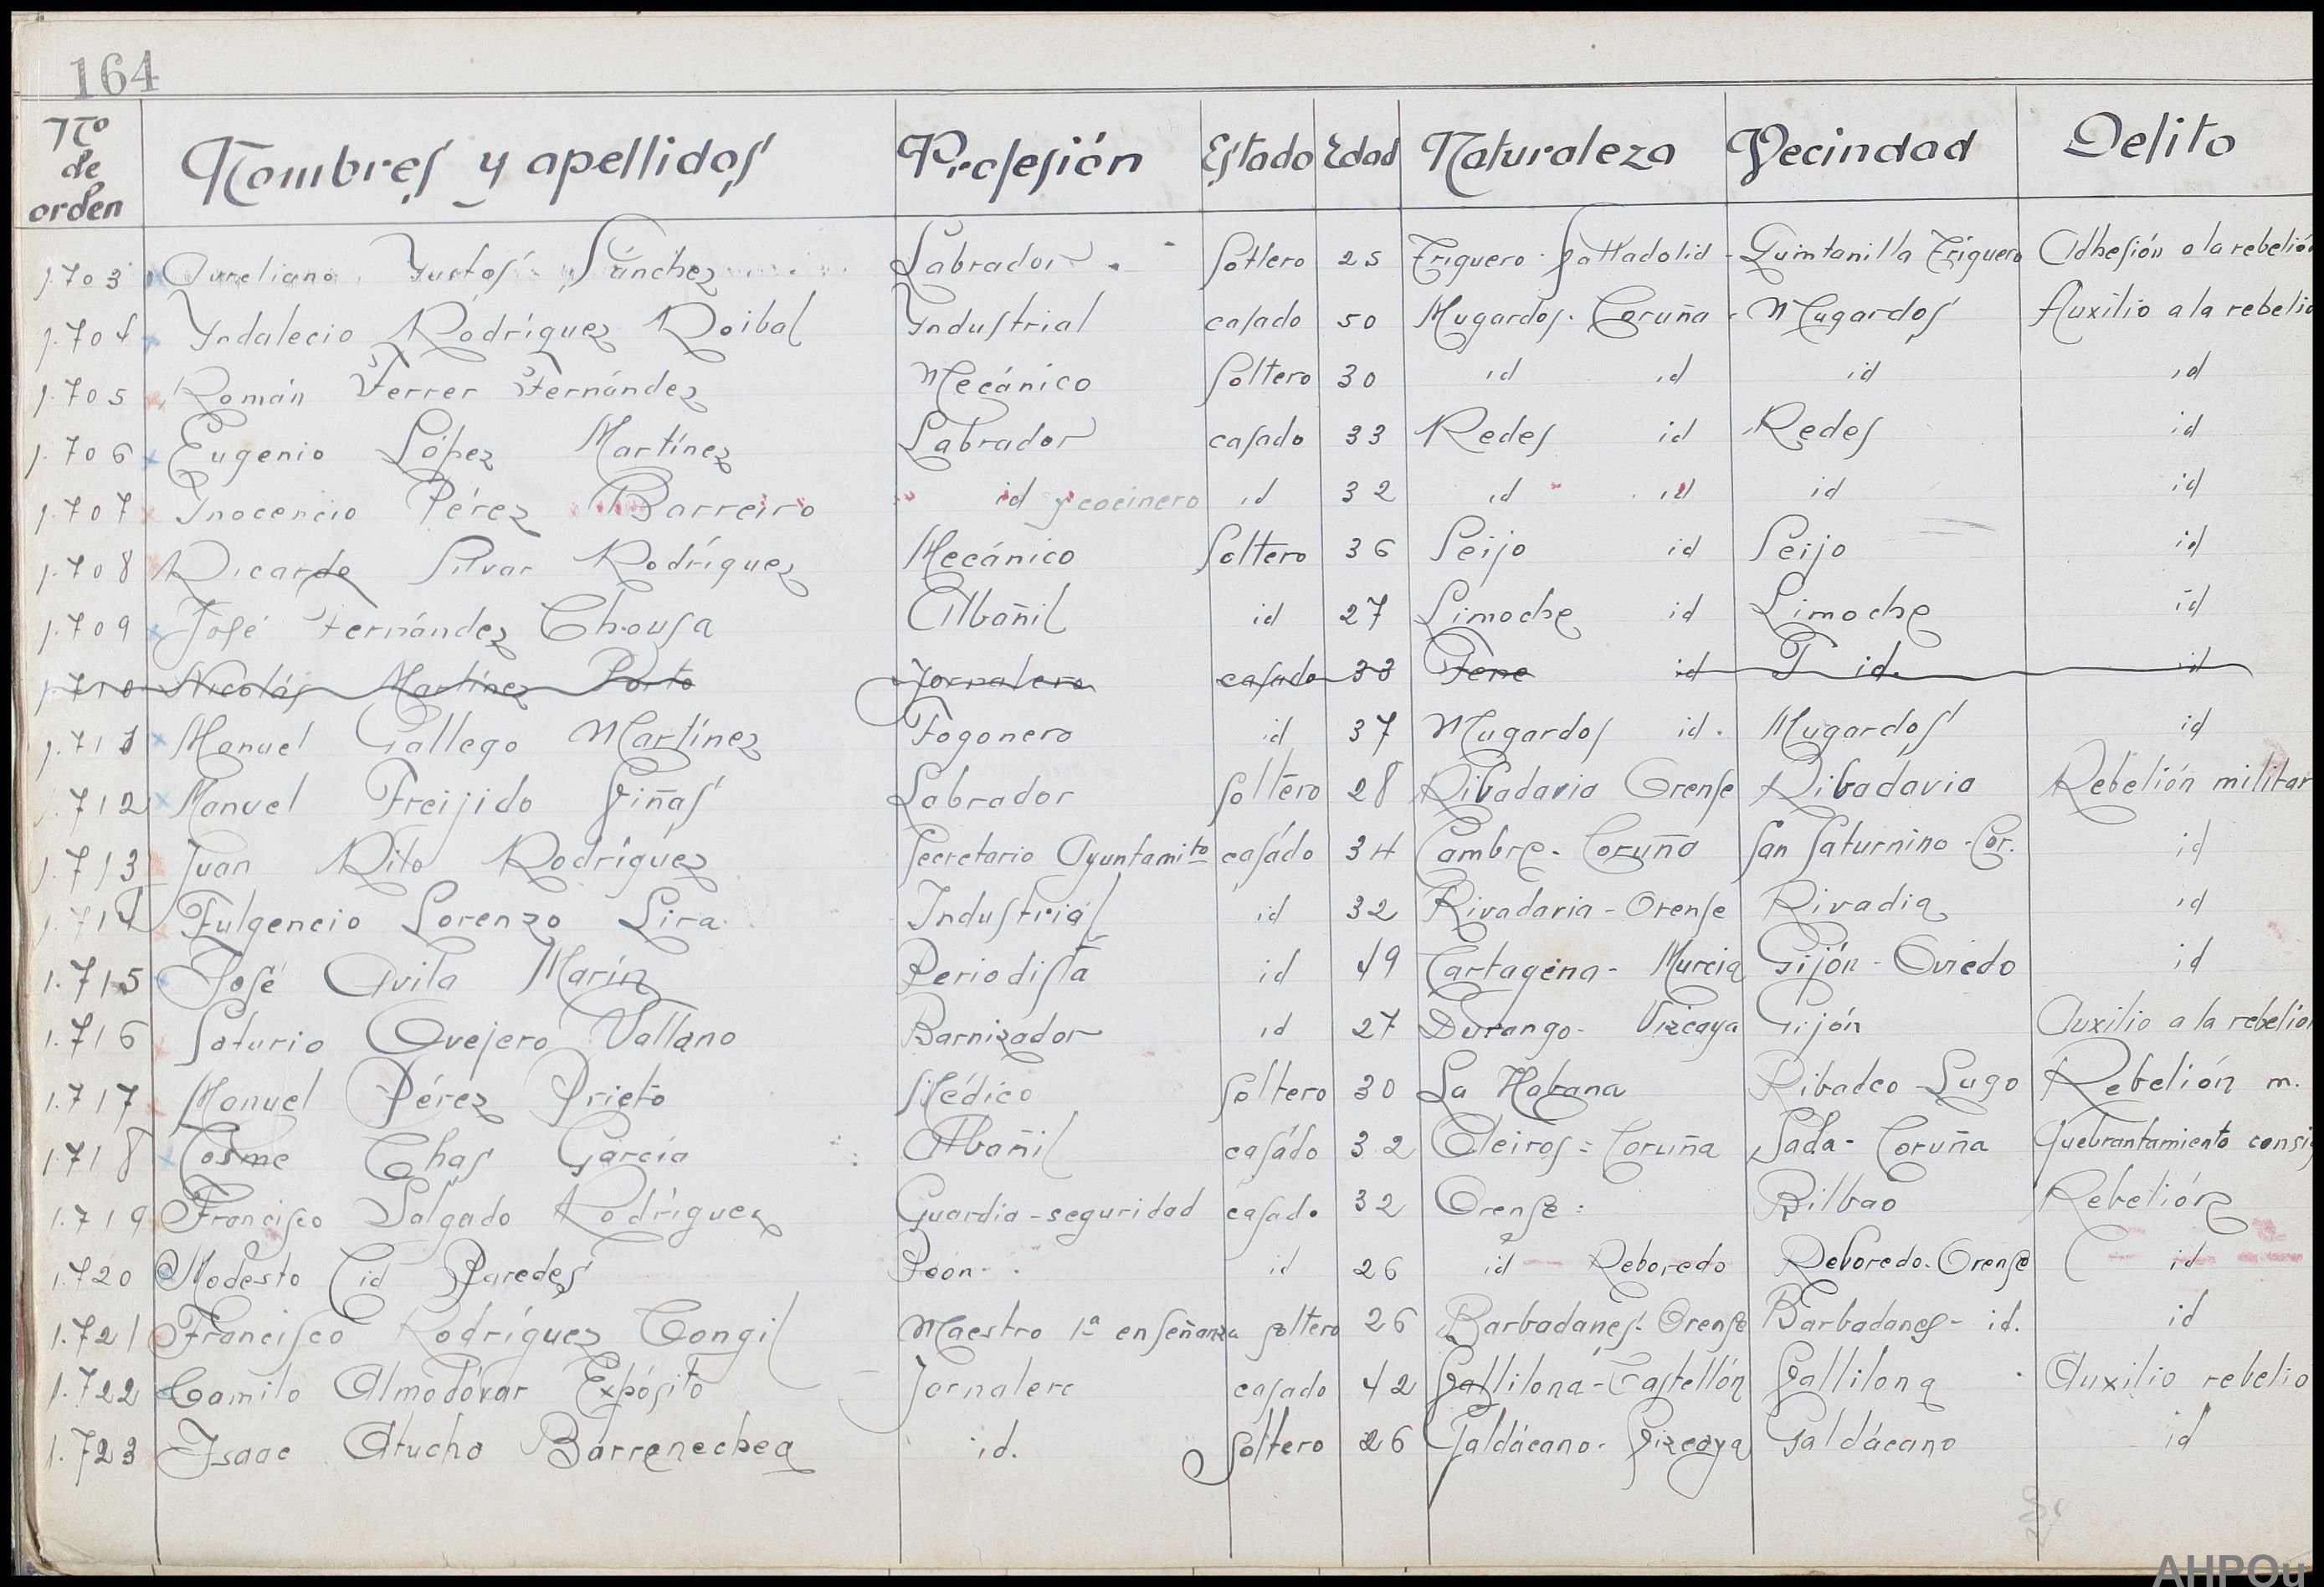 164
Nº de orden Nombres y apellidos Profesión Estado Edad Naturaleza Vecindad Delito
1.703 Aureliano Justos Sánchez Labrador Soltero 25 Triguero - Valladolid - Quintanilla Triguero Adhesión a la rebelión
1.704 Yndalecio Rodríguez Roibal Yndustrial casado 50 Mugardos - Coruña - Mugardos Auxilio a la rebelió
1.705 Román Ferrer Fernández Mecánico Soltero 30 id id id id
1.706 Eugenio López Martínez Labrador casado 33 Redes id Redes id
1.707 Ynocencio Pérez Barreiro id y cocinero id 32 id id id id
1.708 Ricardo Silvar Rodríguez Mecánico Soltero 36 Seijo id Seijo id
1.709 José Fernández Chousa Albañil id 27 Limoche id Limoche id
1.710 Nicolás Martínez Porto Jornalero casado 33 Fene id id. id
1.711 Manuel Gallego Martínez Fogonero id 37 Mugardos id. Mugardos id
1.712 Manuel Freijido Viñas Labrador Soltero 28 Ribadavia Orense Ribadavia Rebelión militar
1.713 Juan Rito Rodríguez Secretario Ayuntamito casado 34 Cambre - Coruña San Saturnino - Cor. id
1.714 Fulgencio Lorenzo Lira Industrial id 32 Rivadavia - Orense Rivadia id
1.715 José Avila Marín Periodista id 49 Cartagena - Murcia Gijón - Oviedo id
1.716 Saturio Ovejero Vallano Barnizador id 27 Durango - Vizcaya Gijón Auxilio a la rebelion
1.717 Manuel Pérez Prieto Médico Soltero 30 La Habana Ribadeo - Lugo Rebelión m.
1.718 Cosme Chas García Albañil casado 32 Oleiros = Coruña Sada - Coruña Quebrantamiento consig
1.719 Francisco Salgado Rodríguez Guardia - seguridad casado 32 Orense : Bilbao Rebelión
1.720 Modesto Cid Paredes Peón id 26 id Reboredo Reboredo - Orense id
1.721 Francisco Rodríguez Congil Maestro 1ª enseñanza soltero 26 Barbadanes - Orense Barbadanes - id. id
1.722 Camilo Almodóvar Expósito Jornalero casado 42 Vallilona - Castellón Vallilona Auxilio rebelio
1.723 Isaac Atucha Barrenechea id. Soltero 26 Galdácano - Vizcaya Galdácano id
AHPOu